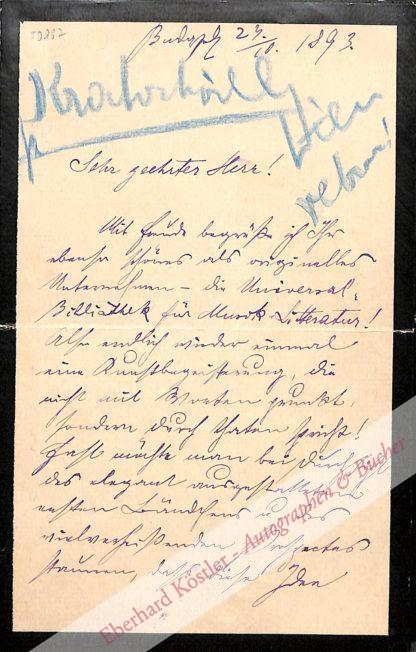 59867
Budapest 23./10. 1893.
Sehr geehrter Herr!
Mit Freude begrüße ich Ihr
ebenso schönes als originelles
Unternehmen – die Universal-
Bibliothek für Musik-Litteratur!
Also endlich wieder einmal
eine Kunstbegeisterung, die
nicht mit Worten prunkt,
sondern durch Thaten spricht!
Fast möchte man bei Durchsicht
des elegant ausgestatteten
ersten Bändchens und des
vielverheißenden Prospectes
staunen, daß diese Idee
Eberhard Köstler - Autographen & Bücher